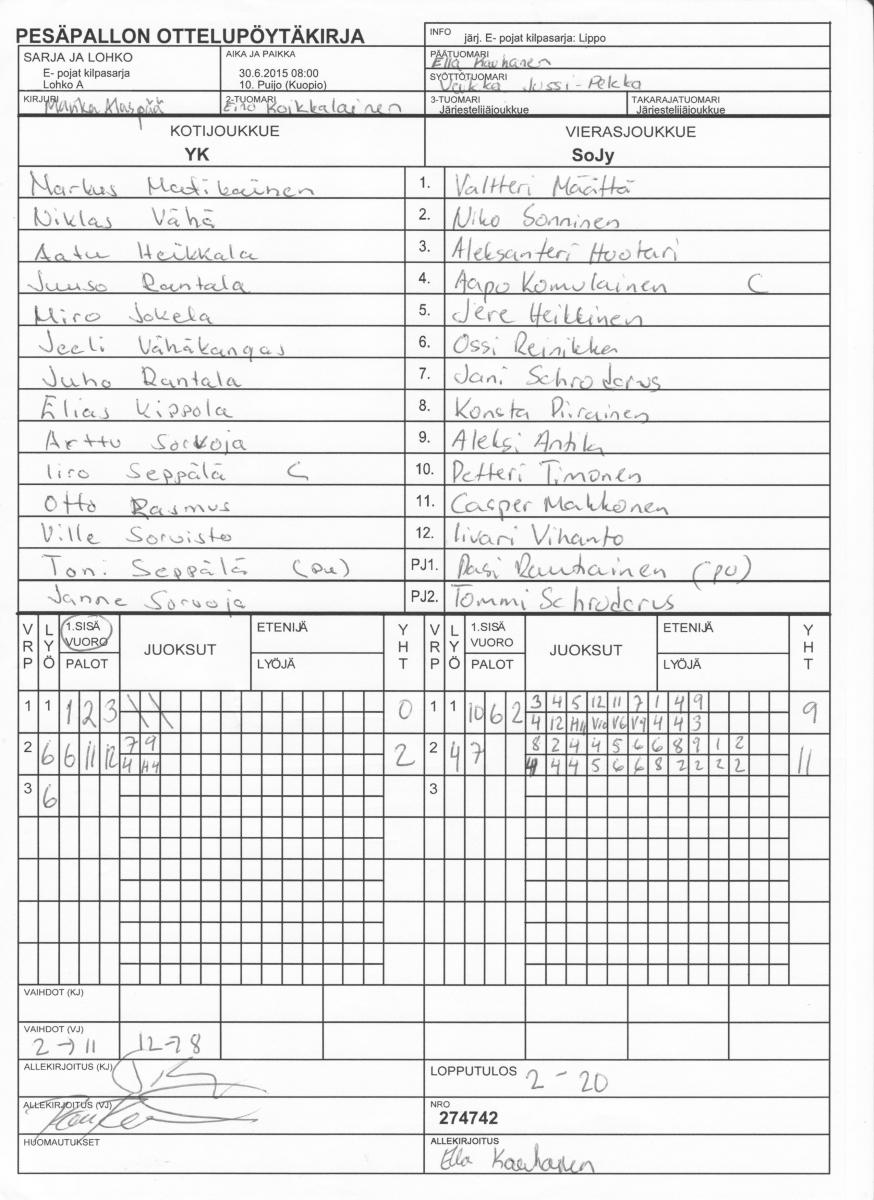 PESÄPALLON OTTELUPÖYTÄKIRJA
INFO järj. E- pojat kilpasarja: Lippo
SARJA JA LOHKO
E- pojat kilpasarja
Lohko A
AIKA JA PAIKKA
30.6.2015 08:00
10. Puijo (Kuopio)
PÄÄTUOMARI
Ella Kauhanen
SYÖTTÖTUOMARI
Jussi-Pekka
KIRJURI
2-TUOMARI
Koikkalainen
3-TUOMARI
Järjestelijäjoukkue
TAKARAJATUOMARI
Järjestelijäjoukkue
KOTIJOUKKUE
YK
VIERASJOUKKUE
SoJy
Markus Matikainen 1. Valtteri Määttä
Niklas Vähä 2. Niko Sonninen
Aatu Heikkala 3. Aleksanteri Huotari
Juuso Rantala 4. Aapo Komulainen C
Miro Jokela 5. Jere Heikkinen
Jeeli Vähäkangas 6. Ossi Reinikka
Juho Rantala 7. Jani Schroderus
Elias Kippola 8. Konsta Piirainen
Arttu Sorvoja 9. Aleksi Antika
Iiro Seppälä C 10. Petteri Timonen
Otto Rasmus 11. Casper Makkonen
Ville Sorvisto 12. Iivari Vihanto
Toni Seppälä (pu) PJ1. Pasi Rautiainen (pu)
Janne Sorvoja PJ2. Tommi Schroderus
VRP LYÖ 1.SISÄ VUORO PALOT JUOKSUT ETENIJÄ LYÖJÄ YHT VRP LYÖ 1.SISÄ VUORO PALOT JUOKSUT ETENIJÄ LYÖJÄ YHT
1 1 1 2 3 0 1 1 10 6 2 3 4 5 12 11 7 1 4 9 9
4 12 H11 V10 V6 V9 4 4 3
2 6 6 11 12 7 9 2 2 4 7 8 2 4 4 5 6 6 8 9 1 2 11
4 H4 4 4 4 5 6 6 8 2 2 2 2
3 6 3
VAIHDOT (KJ)
VAIHDOT (VJ)
2→11 12→8
ALLEKIRJOITUS (KJ)
LOPPUTULOS 2 - 20
ALLEKIRJOITUS (VJ)
NRO
274742
HUOMAUTUKSET
ALLEKIRJOITUS
Ella Kauhanen